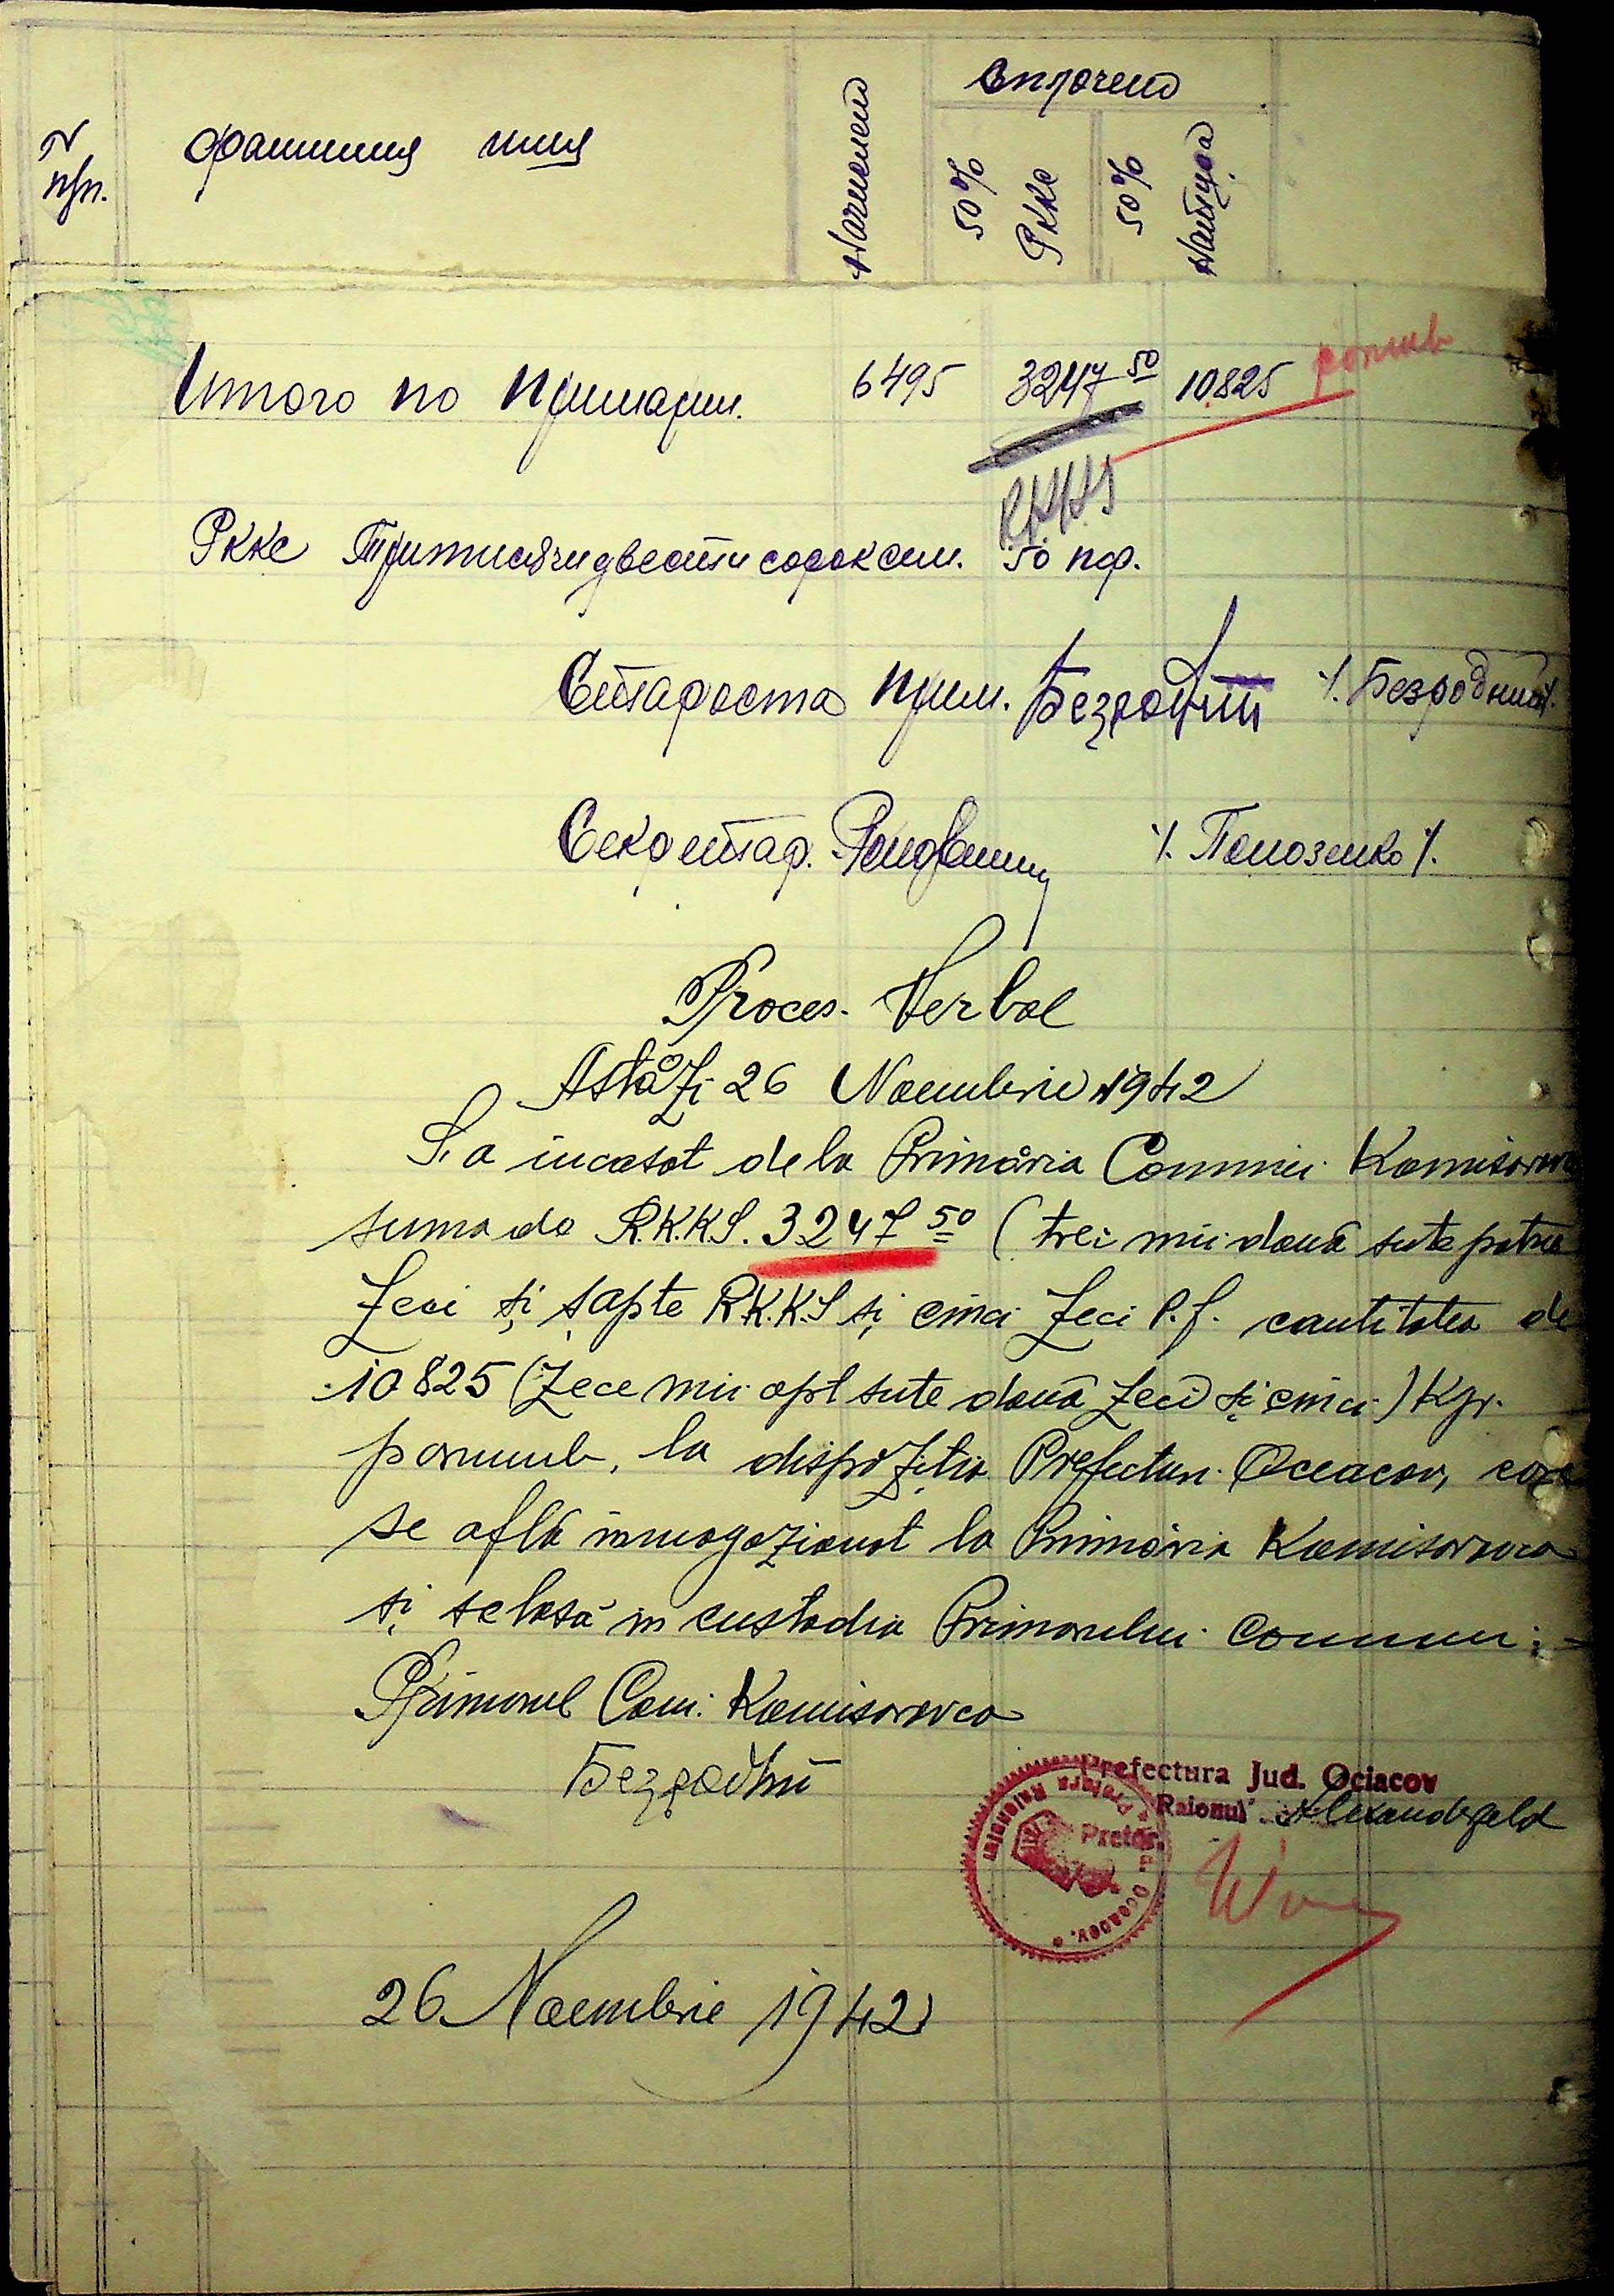 N п/п.
Фамилия имя
Начислено
Сплочено
50% Ркке
50% Натура
Итого по примарии. 6495 3247 50 10825 porumb
RKKS
Ркке Тритисячидвестисороксем. 50 пф.
Староста прим. Безродний /. Безродний /.
Секретар. /. Помозенко /.
Proces. Verbal
Astăzi 26 Noembrie 1942
S'a incasat dela Primăria Comunei Komisarovca
suma de R.K.K.S. 3247 50 (trei mii două sute patru
zeci și șapte R.K.K.S și cinci zeci P.f. cantitatea de
10825 (zece mii opt sute două zeci și cinci) Kgr.
porumb, la dispoziția Prefecturi Oceacov, care
se află inmagazionat la Primăria Komisarovca
și selasă in custodia Primarului Comunei =
Primarul Com. Komisarovca
Безродний
Prefectura Jud. Ociacov
Raionul Alexanderfeld
Pretor.
Pretura Raionului
Oceacov.
26 Noembrie 1942